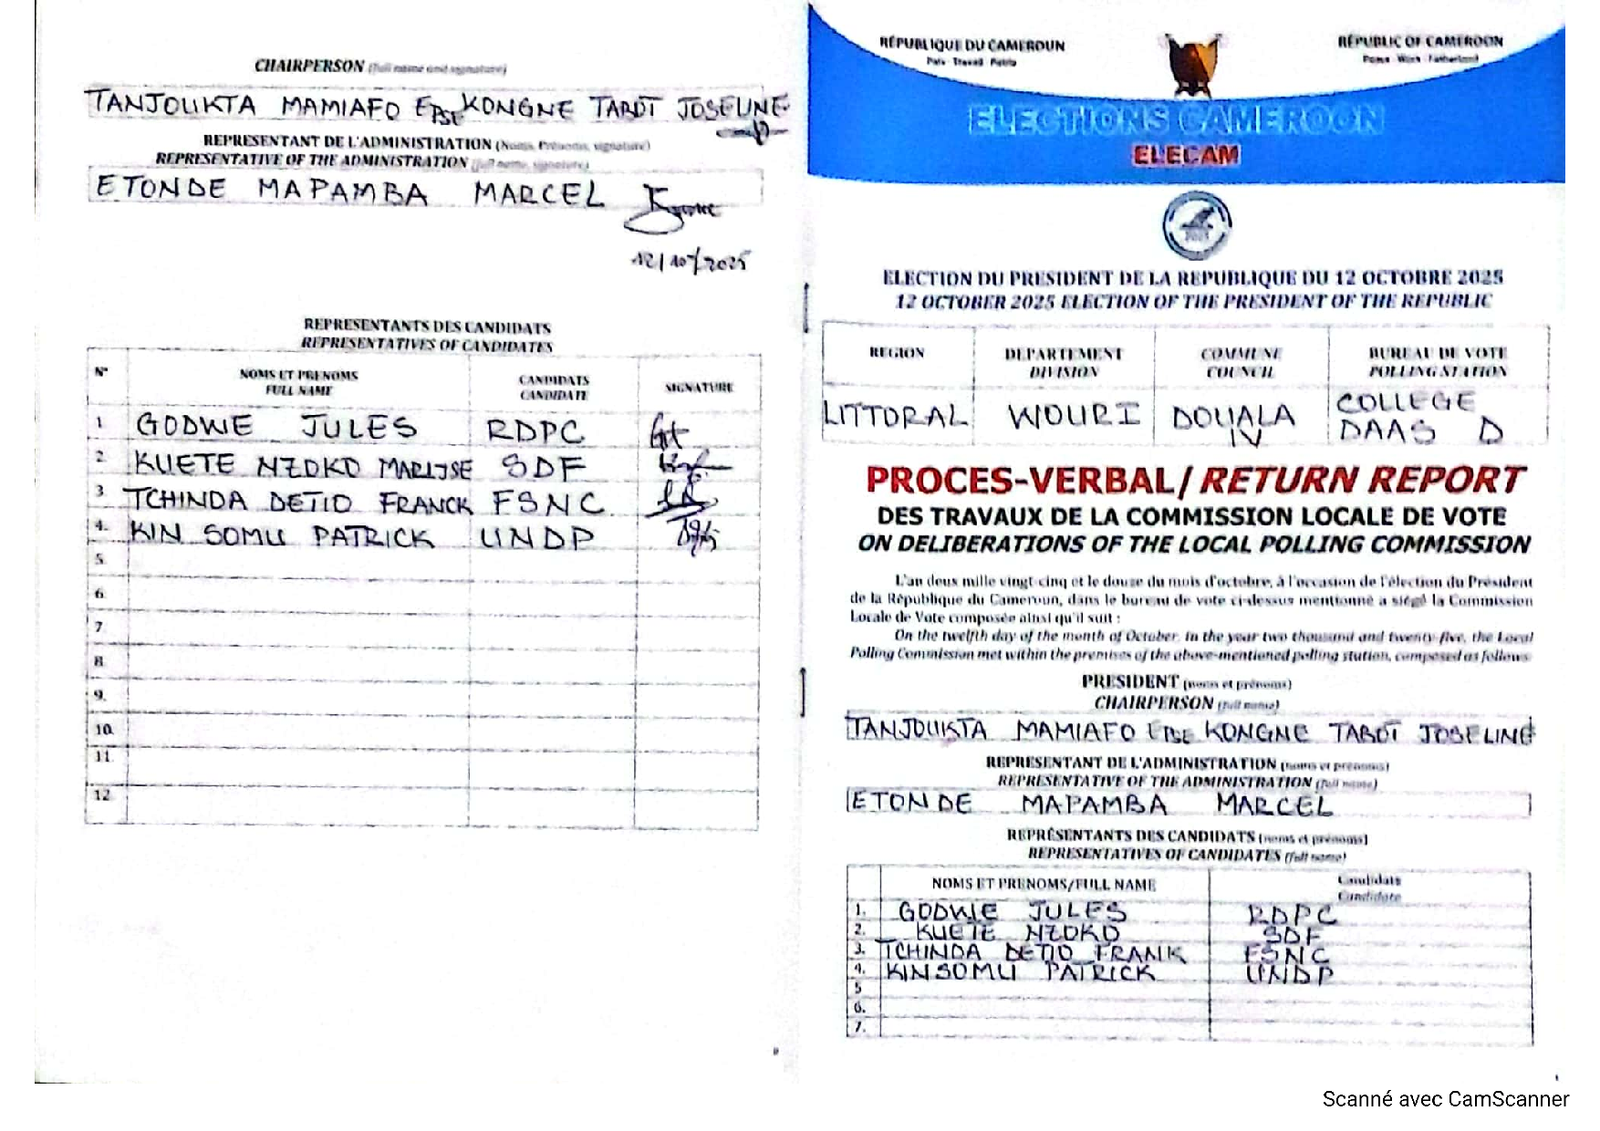 CHAIRPERSON (full name and signature)
TANJOUKTA MAMIAFO EPSE KONGNE TABOT JOSELINE
REPRESENTANT DE L'ADMINISTRATION (Noms, Prénoms, signature)
REPRESENTATIVE OF THE ADMINISTRATION (full name, signature)
ETONDE MAPAMBA MARCEL
12/10/2025
REPRESENTANTS DES CANDIDATS
REPRESENTATIVES OF CANDIDATES
N° NOMS ET PRENOMS FULL NAME CANDIDATS CANDIDATE SIGNATURE
1 GODWE JULES RDPC
2 KUETE NZOKO MARLYSE SDF
3 TCHINDA DETIO FRANCK FSNC
4. KIN SOMU PATRICK UNDP
5.
6.
7.
8.
9.
10.
11.
12.
RÉPUBLIQUE DU CAMEROUN
Paix - Travail - Patrie
RÉPUBLIC OF CAMEROON
Peace - Work - Fatherland
ELECTIONS CAMEROON
ELECAM
2025
ELECTION DU PRESIDENT DE LA REPUBLIQUE DU 12 OCTOBRE 2025
12 OCTOBER 2025 ELECTION OF THE PRESIDENT OF THE REPUBLIC
REGION DEPARTEMENT DIVISION COMMUNE COUNCIL BUREAU DE VOTE POLLING STATION
LITTORAL WOURI DOUALA IV COLLEGE DAAS D
PROCES-VERBAL/ RETURN REPORT
DES TRAVAUX DE LA COMMISSION LOCALE DE VOTE
ON DELIBERATIONS OF THE LOCAL POLLING COMMISSION
L'an deux mille vingt-cinq et le douze du mois d'octobre, à l'occasion de l'élection du Président
de la République du Cameroun, dans le bureau de vote ci-dessus mentionné a siégé la Commission
Locale de Vote composée ainsi qu'il suit :
On the twelfth day of the month of October, in the year two thousand and twenty-five, the Local
Polling Commission met within the premises of the above-mentioned polling station, composed as follows
PRESIDENT (noms et prénoms)
CHAIRPERSON (full name)
TANJOUKTA MAMIAFO EPSE KONGNE TABOT JOSELINE
REPRESENTANT DE L'ADMINISTRATION (noms et prénoms)
REPRESENTATIVE OF THE ADMINISTRATION (full name)
ETONDE MAPAMBA MARCEL
REPRÉSENTANTS DES CANDIDATS (noms et prénoms)
REPRESENTATIVES OF CANDIDATES (full name)
NOMS ET PRENOMS/FULL NAME Candidats Candidate
1. GODWIE JULES RDPC
2. KUETE NZOKO SDF
3. TCHINDA DETIO FRANK FSNC
4. KINSOMU PATRICK UNDP
5
6.
7.
Scanné avec CamScanner